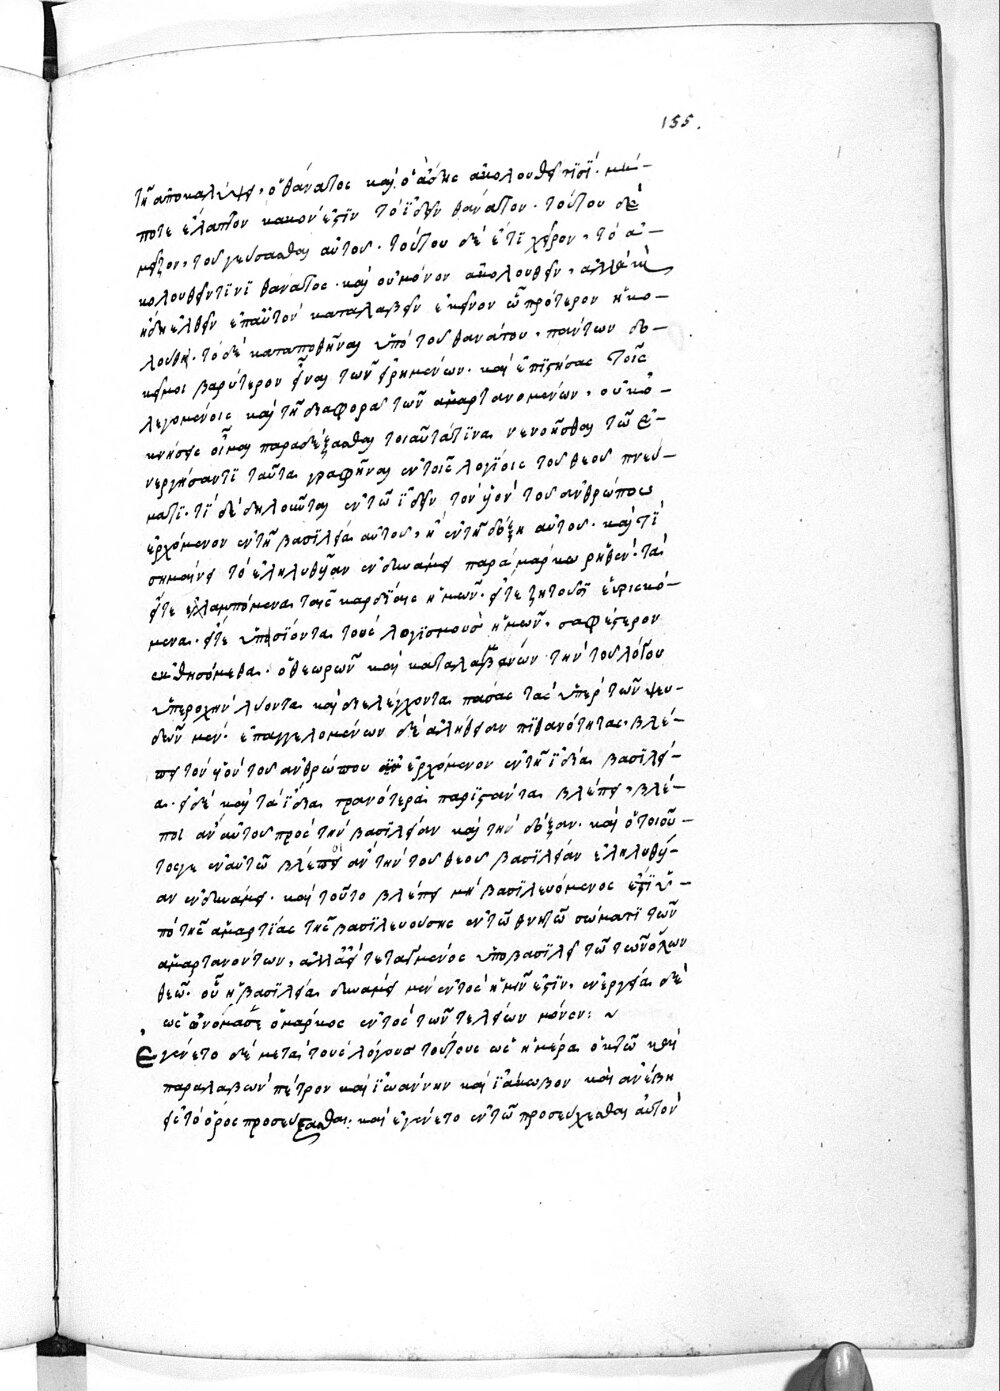 155.
τῇ ἀποκαλύψει, ὁ θάνατος καὶ ὁ ἅδης ἀκολουθεῖ τισί· μή-
ποτε ἔλαττον κακὸν ἐστὶν τὸ ἰδεῖν θάνατον· τούτου δὲ
μεῖζον, τοῦ γεύσασθαι αὐτοῦ· τούτου δὲ ἔτι χεῖρον, τὸ ἀ-
κολουθεῖν τινὶ θάνατος· καὶ οὐ μόνον ἀκολουθεῖν, ἀλλὰ καὶ
ἤδη ἐλθεῖν ἐπ' αὐτὸν καταλαβεῖν ἐκεῖνον ᾧ πρότερον ἠκο-
λούθει· τὸ δὲ καταποθῆναι ὑπὸ τοῦ θανάτου, πάντων δο-
κεῖ μοι βαρύτερον εἶναι τῶν εἰρημένων· καὶ ἐπιστήσας τοῖς
λεγομένοις καὶ τῇ διαφορᾷ τῶν ἁμαρτανομένων, οὐκ ὀ-
κνήσεις οἶμαι παραδέξασθαι τοιαῦτά τινα νενοῆσθαι τῷ ἐ-
νεργήσαντι ταῦτα γραφῆναι ἐν τοῖς λογίοις τοῦ θεοῦ πνεύ-
ματι· τί δὲ δηλοῦται ἐν τῷ ἰδεῖν τὸν υἱὸν τοῦ ἀνθρώπου
ἐρχόμενον ἐν τῇ βασιλείᾳ αὐτοῦ, ἢ ἐν τῇ δόξῃ αὐτοῦ· καὶ τί
σημαίνει τὸ ἐληλυθῖαν ἐν δυνάμει παρὰ μάρκω ῥηθέν· τὰ
εἴτε ἐλλαμπόμενα ταῖς καρδίαις ἡμῶν· εἴτε ζητοῦσι εὑρισκό-
μενα· εἴτε ὑπεισιόντα τοὺς λογισμοὺς ἡμῶν, σαφέστερον
ἐκθησόμεθα· ὁ θεωρῶν καὶ καταλαμβάνων τὴν τοῦ λόγου
ὑπεροχὴν λύοντα καὶ διελέγχοντα πάσας τὰς ὑπὲρ τῶν ψευ-
δῶν μὲν· ἐπαγγελομένων δὲ ἀλήθειαν πιθανότητας, βλέ-
πει τὸν υἱὸν τοῦ ἀνθρώπου ἐρχόμενον ἐν τῇ ἰδίᾳ βασιλεί-
α· εἰ δὲ καὶ τὰ ἴδια τρανότερα παριστάντα βλέπει, βλέ-
ποι ἂν αὐτοῦ πρὸς τὴν βασιλείαν καὶ τὴν δόξαν· καὶ ὁ τοιοῦ-
τος γε ἐν αὐτῷ βλέποι ἂν τὴν τοῦ θεοῦ βασιλείαν ἐληλυθῖ-
αν ἐν δυνάμει· καὶ τοῦτο βλέπει μὴ βασιλευόμενος ἔτι ὑ-
πὸ τῆς ἁμαρτίας τῆς βασιλευούσης ἐν τῷ θνητῷ σώματι τῶν
ἁμαρτανόντων, ἀλλ' ἀεὶ τεταγμένος ὑπὸ βασιλεῖ τῷ τῶν ὅλων
θεῷ· οὗ ἡ βασιλεία δυνάμει μὲν ἐντὸς ἡμῶν ἐστίν, ἐνεργείᾳ δὲ
ὡς ὠνόμασε ὁ μάρκος ἐντὸς τῶν τελείων μόνον: ~
Εγένετο δὲ μετὰ τοὺς λόγους τούτους ὡς ἡμέραι ὀκτὼ καὶ
παραλαβὼν πέτρον καὶ ἰωάννην καὶ ἰάκωβον καὶ ἀνέβη
εἰς τὸ ὄρος προσεύξασθαι· καὶ ἐγένετο ἐν τῷ προσεύχεσθαι αὐτὸν